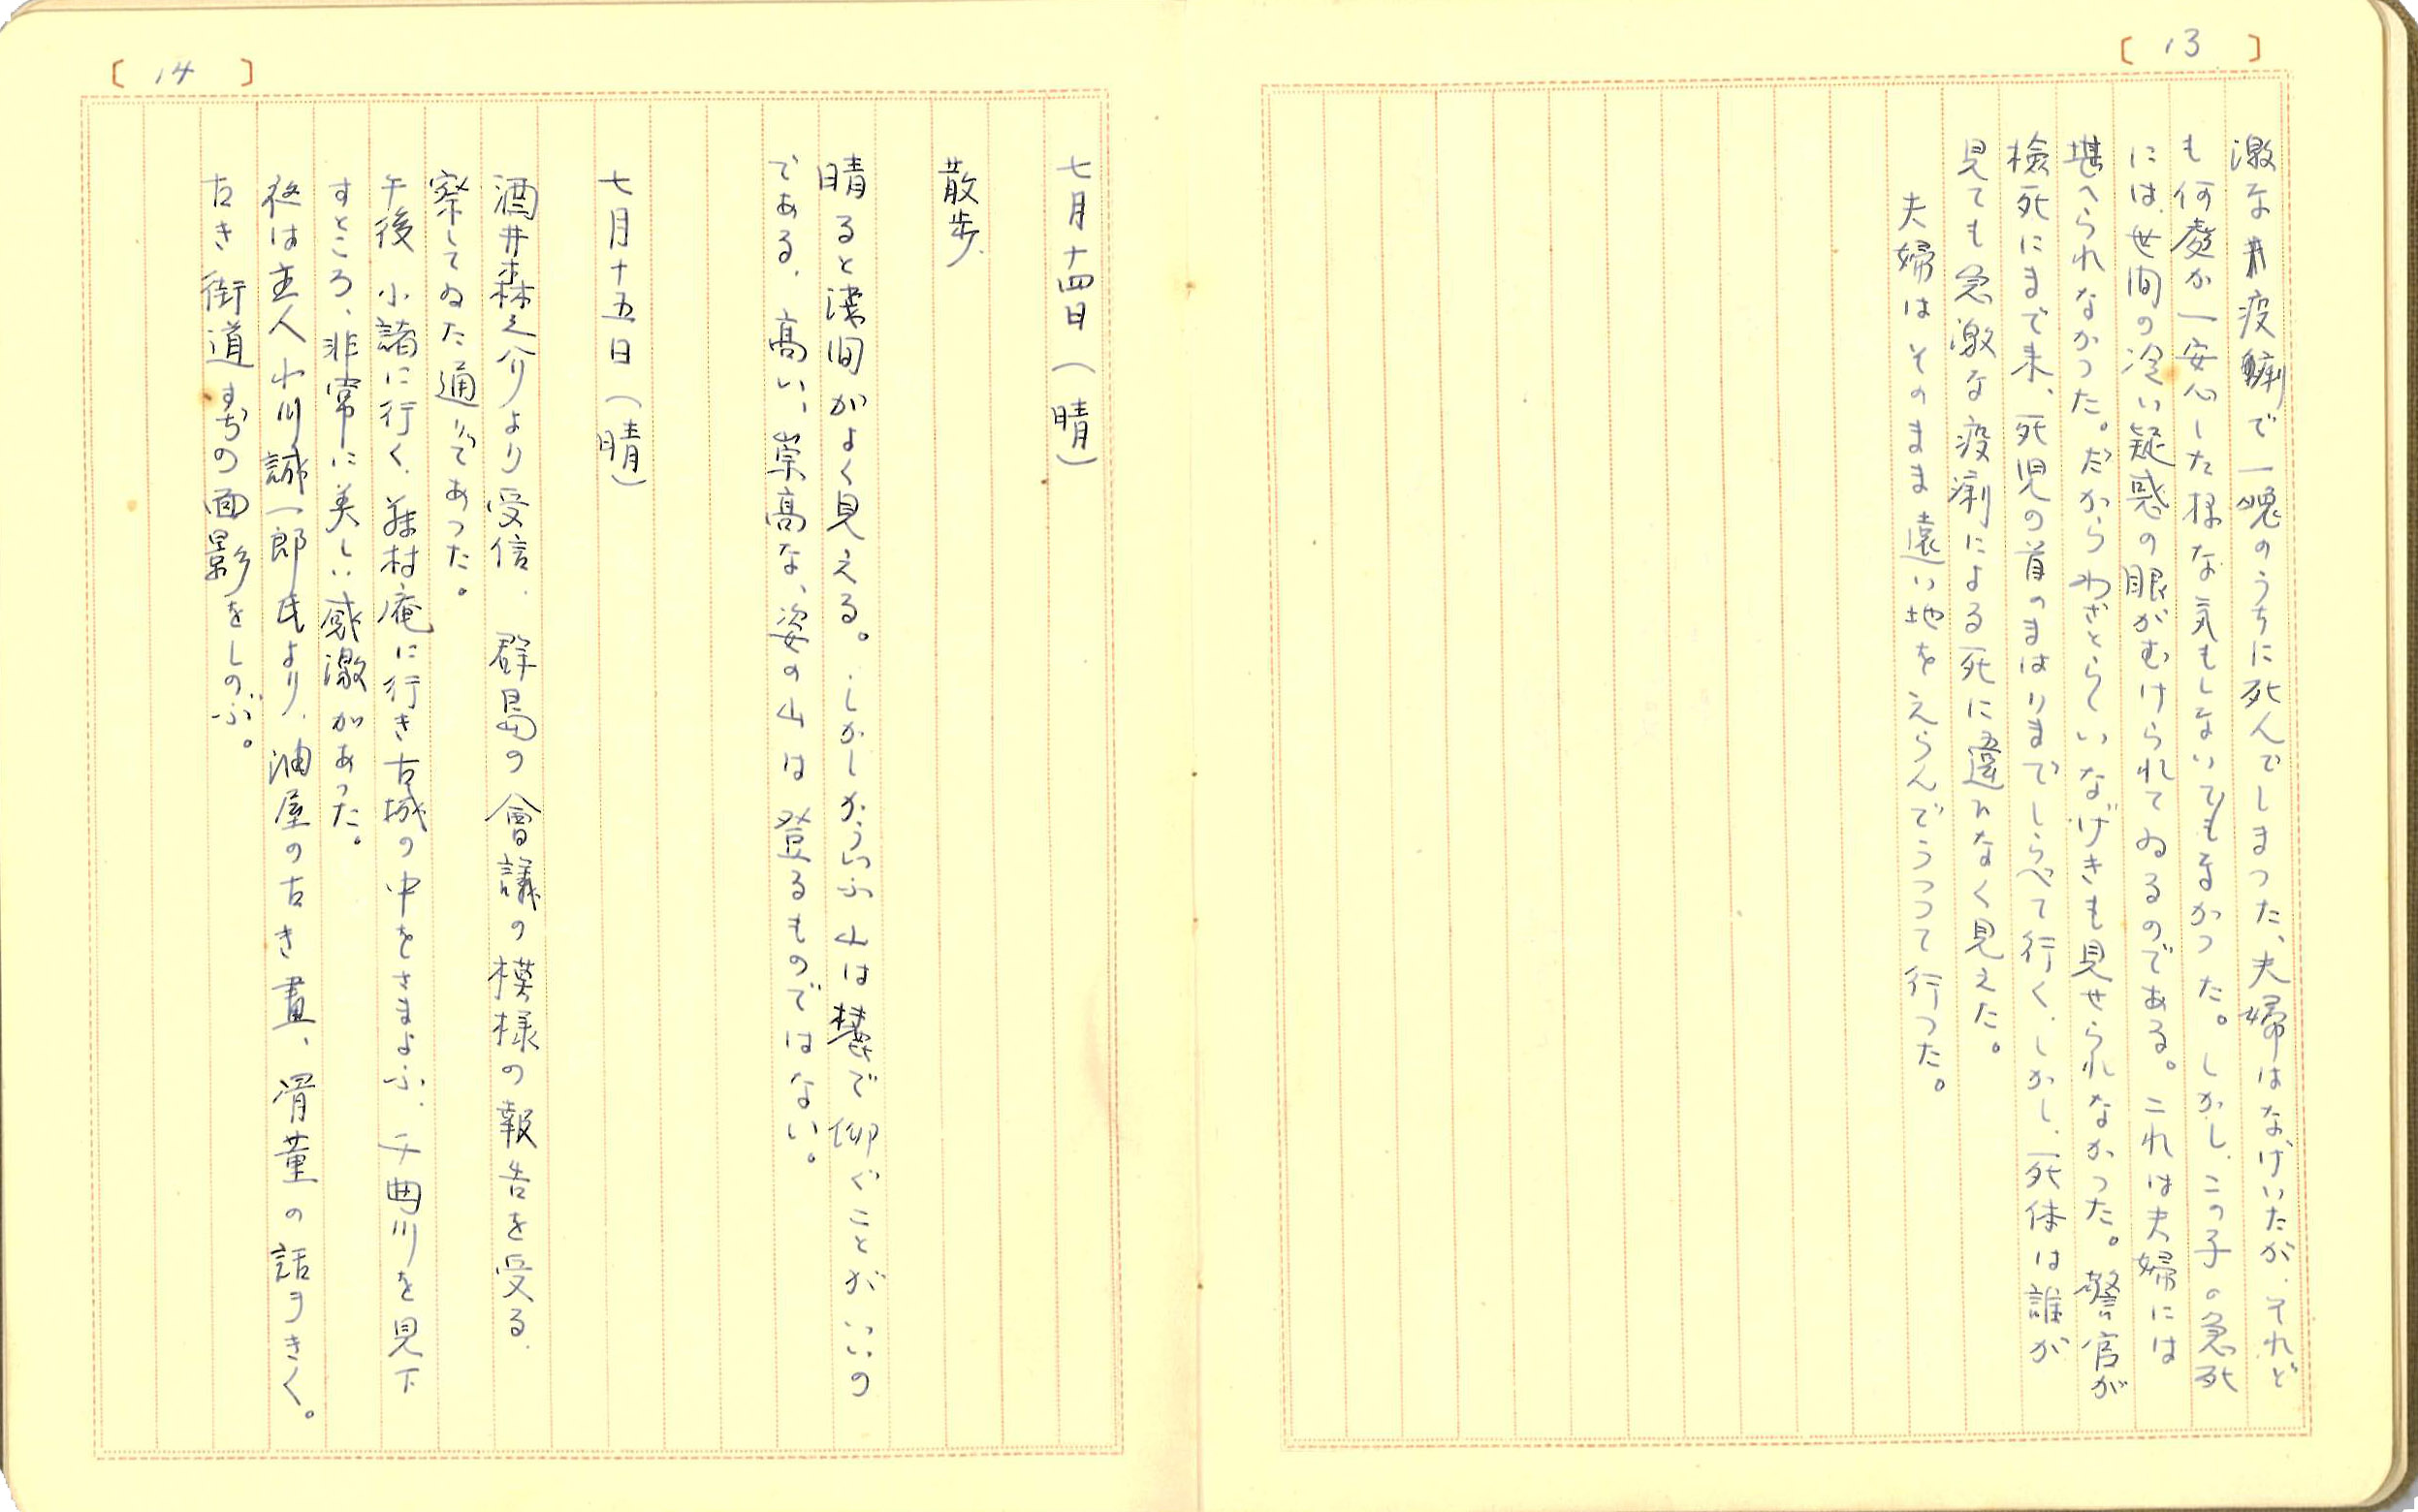 [ 13 ]
激な疫痢で一晩のうちに死んでしまつた、夫婦はなげいたが、それど
も何處か一安心した様な気もしないでもなかつた。しかし、この子の急死
には世間の冷い疑惑の眼がむけられてゐるのである。これは夫婦には
堪へられなかつた。だからわざとらしいなげきも見せられなかつた。警官が
檢死にまで来、死児の首のまはりまでしらべて行く、しかし、死体は誰が
見ても急激な疫痢による死に違ひなく見えた。
夫婦はそのまま遠い地をえらんでうつつて行つた。
[ 14 ]
七月十四日(晴)
散歩、
晴ると淺間がよく見える。しかしかういふ山は麓で仰ぐことがいいの
である、高い、崇高な、姿の山は登るものではない。
七月十五日(晴)
酒井森之介より受信、群島の會議の模様の報告を受る、
察してゐた通りであつた。
午後小諸に行く、藤村庵に行き古城の中をさまよふ、千曲川を見下
すところ、非常に美しい感激があつた。
夜は主人小川誠一郎氏より、油屋の古き畫、骨董の話をきく。
古き街道すぢの面影をしのぶ。